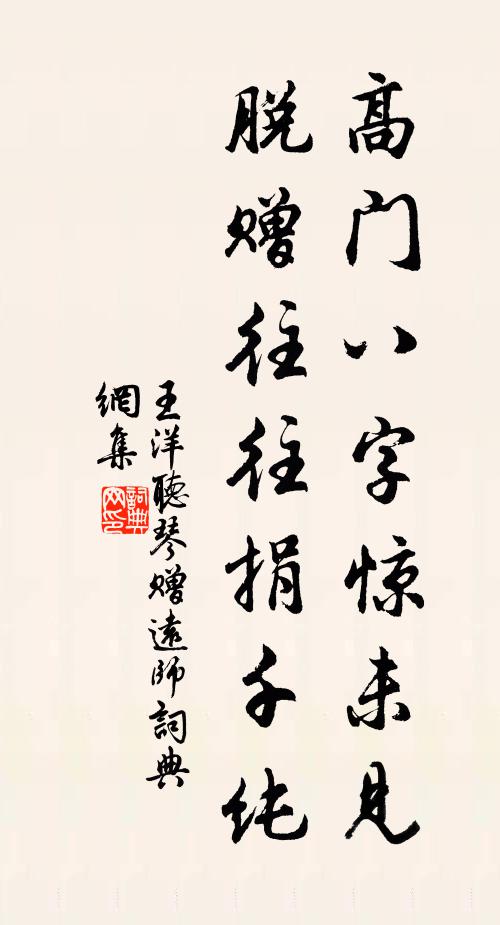 高门八字惊未見
脱赠往往捐千纯
王洋聽琴赠遠師詞典
網集
詞典
网印